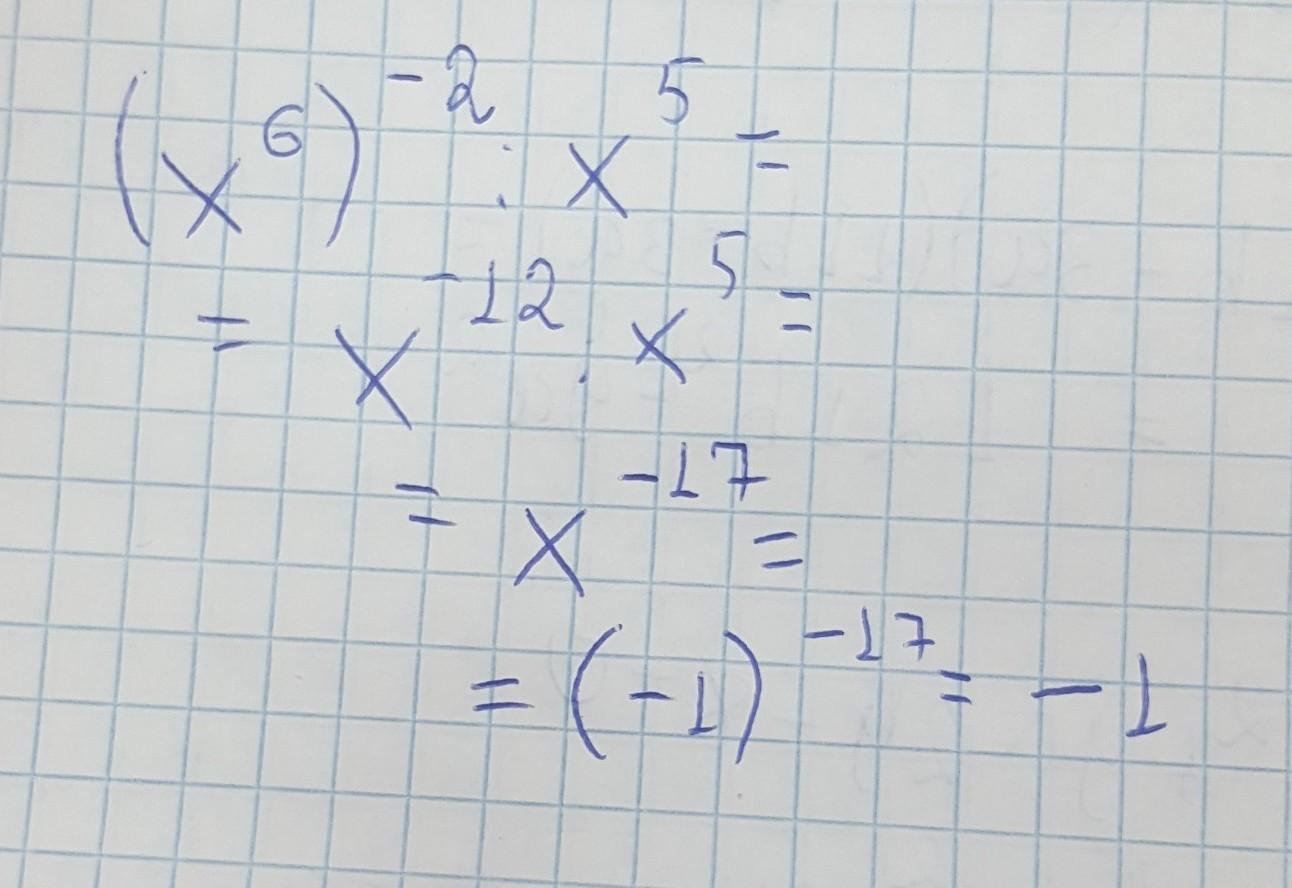 (x⁶)⁻² : x⁵ =
= x⁻¹² : x⁵ =
= x⁻¹⁷ =
= (-1)⁻¹⁷ = -1